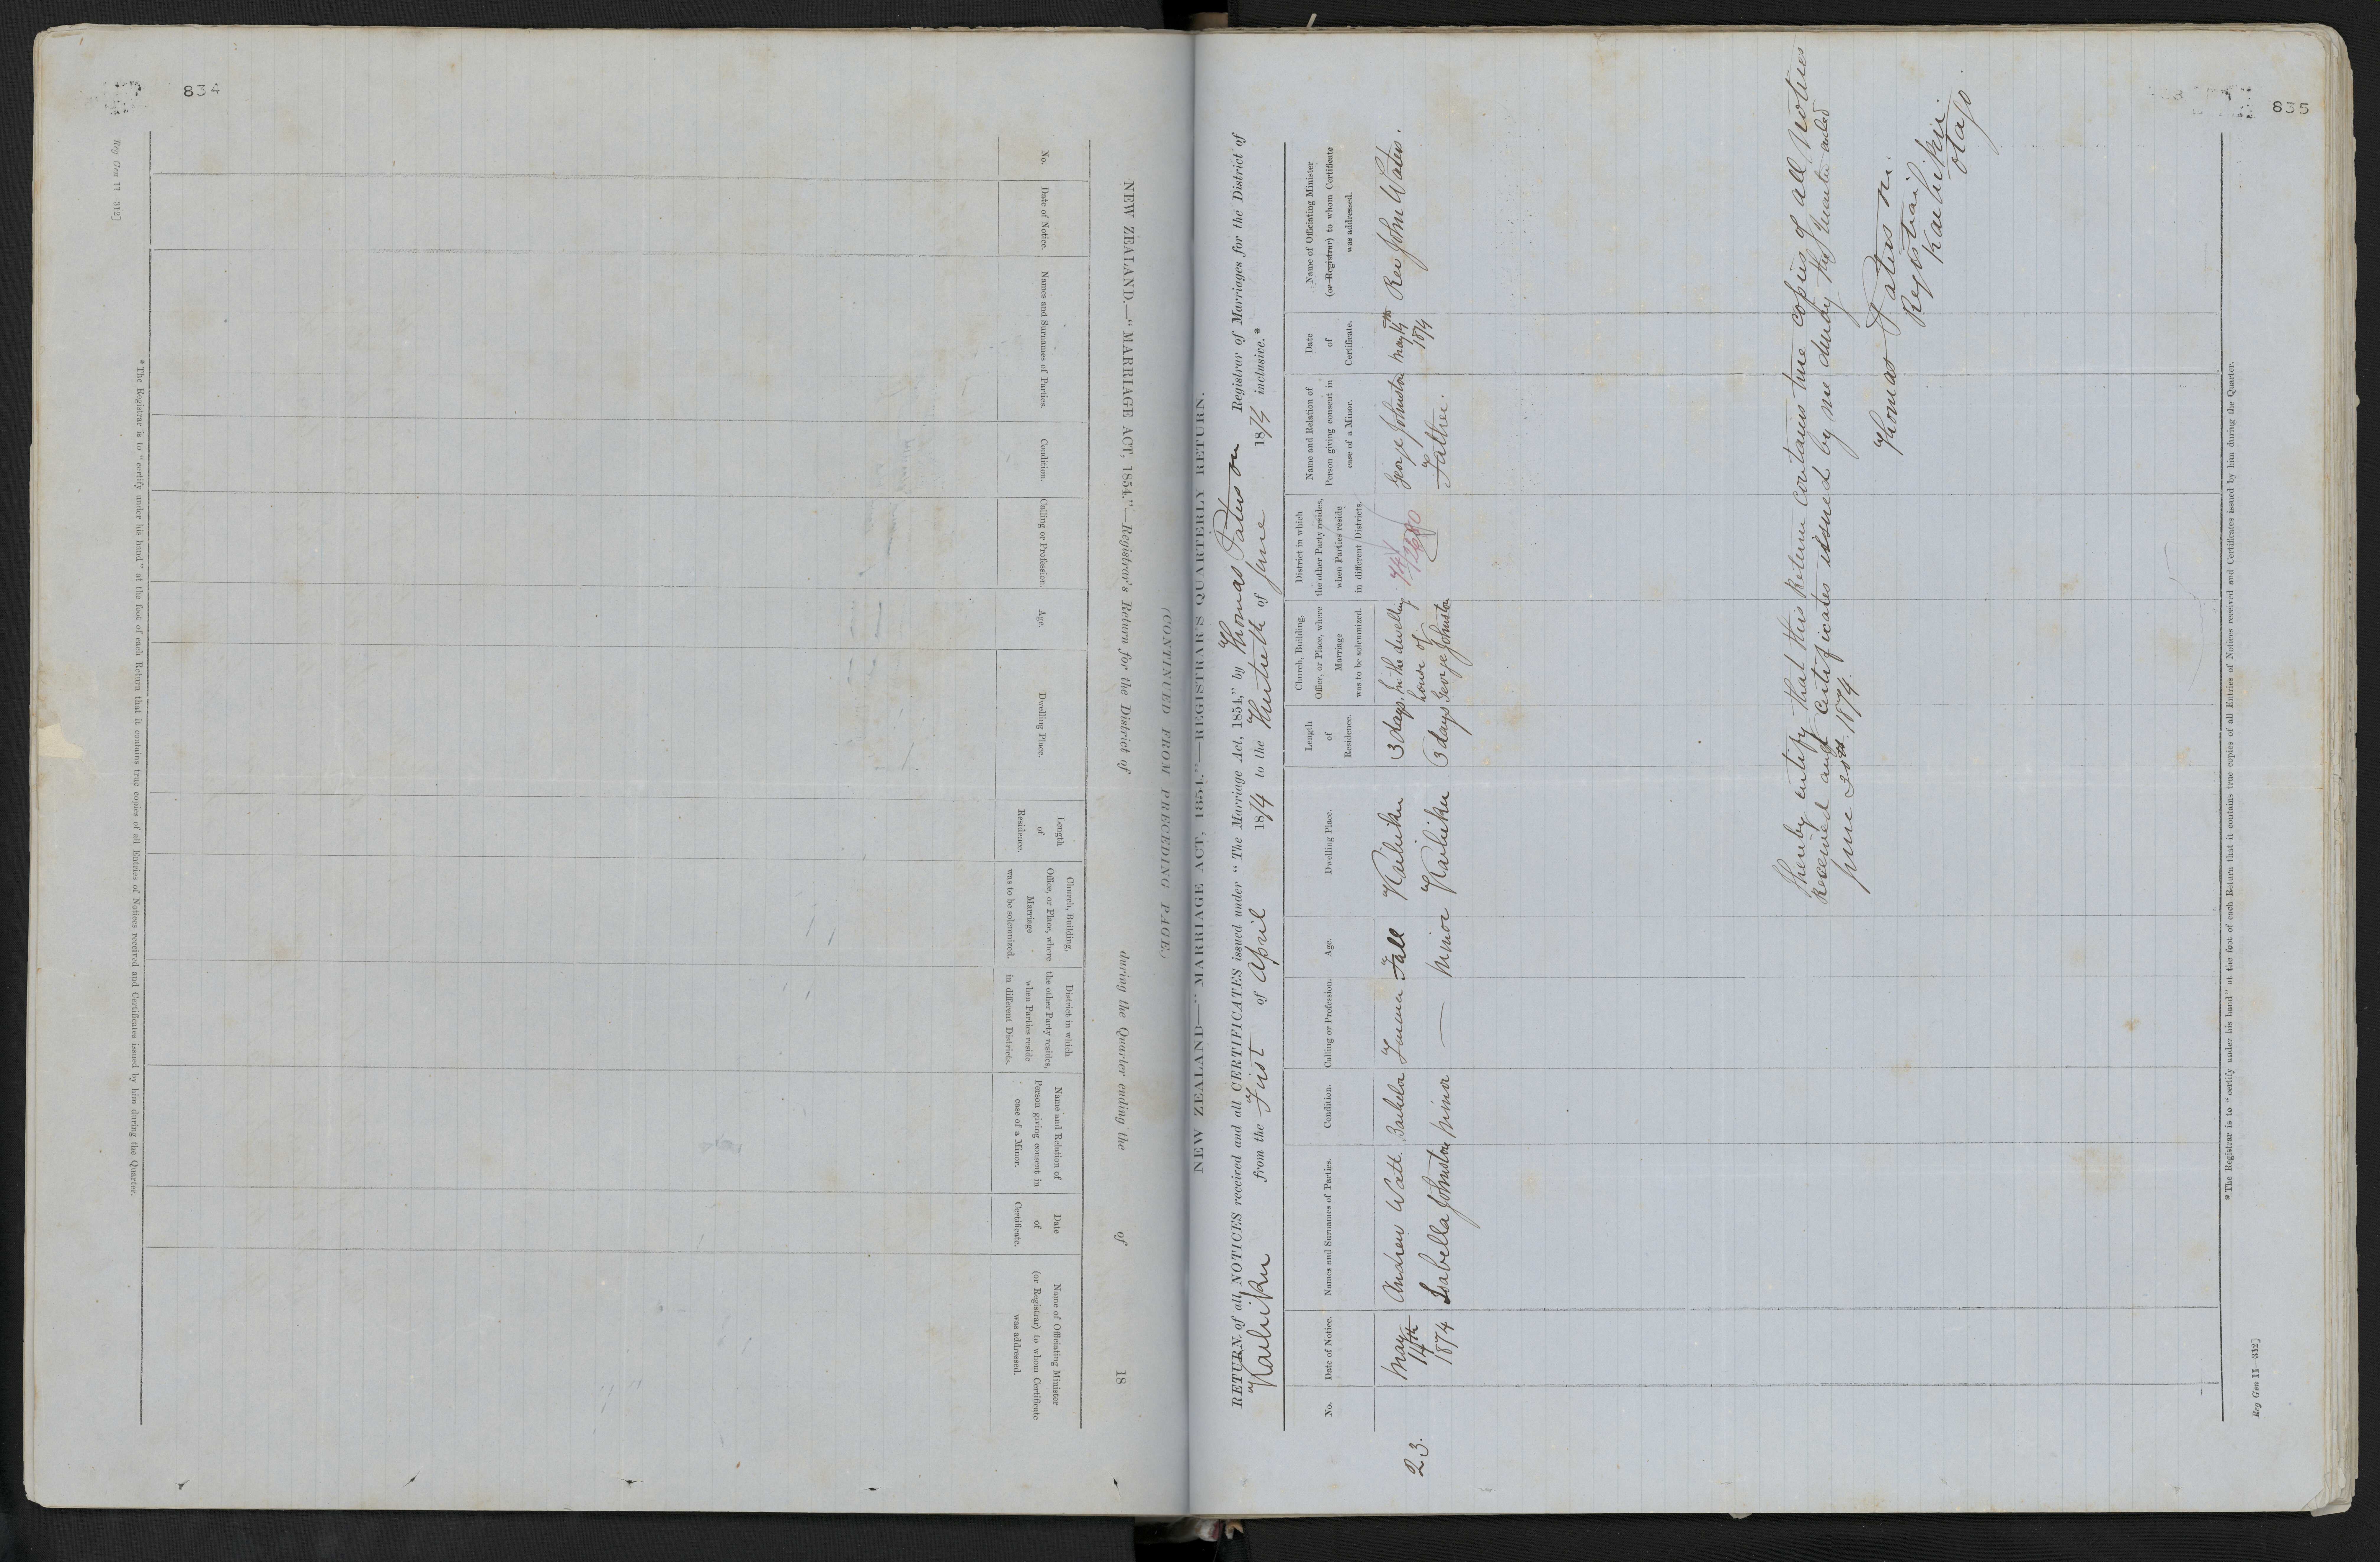 834
NEW ZEALAND.—"MARRIAGE ACT, 1854."—Registrar's Return for the District of during the Quarter ending the of 18
(CONTINUED FROM PRECEDING PAGE.)
No.
Date of Notice.
Names and Surnames of Parties.
Condition.
Calling or Profession.
Age.
Dwelling Place.
Length
of
Residence.
Church, Building,
Office, or Place, where
Marriage
was to be solemnized.
District in which
the other Party resides,
when Parties reside
in different Districts.
Name and Relation of
Person giving consent in
case of a Minor.
Date
of
Certificate.
Name of Officiating Minister
(or Registrar) to whom Certificate
was addressed.
*The Registrar is to "certify under his hand" at the foot of each Return that it contains true copies of all Entries of Notices received and Certificates issued by him during the Quarter.
Reg Gen 11—312]
835
NEW ZEALAND—"MARRIAGE ACT, 1854."—REGISTRAR'S QUARTERLY RETURN.
RETURN of all NOTICES received and all CERTIFICATES issued under "The Marriage Act, 1854," by Thomas Paterson Registrar of Marriages for the District of
Kaihiku from the First of April 1874 to the Thirtieth of June 1874 inclusive.*
No.
Date of Notice.
Names and Surnames of Parties.
Condition.
Calling or Profession.
Age.
Dwelling Place.
Length
of
Residence.
Church, Building,
Office, or Place, where
Marriage
was to be solemnized.
District in which
the other Party resides,
when Parties reside
in different Districts.
Name and Relation of
Person giving consent in
case of a Minor.
Date
of
Certificate.
Name of Officiating Minister
(or Registrar) to whom Certificate
was addressed.
23.
May
14th
1874
Andrew Watt Bachelor Farmer Full Kaihiku 3 days In the dwelling
house of
George Johnston
George Johnston
Father.
May 14th
1874
Rev John Waters.
Isabella Johnston Minor — Minor Kaihiku 3 days
I hereby certify that this Return contains true copies of all Notices
received and certificates issued by me during the Quarter ended
June 30th 1874.
Thomas Paterson.
Registrar
Kaihiku.
Otago.
*The Registrar is to "certify under his hand" at the foot of each Return that it contains true copies of all Entries of Notices received and Certificates issued by him during the Quarter.
Reg Gen 11—312]